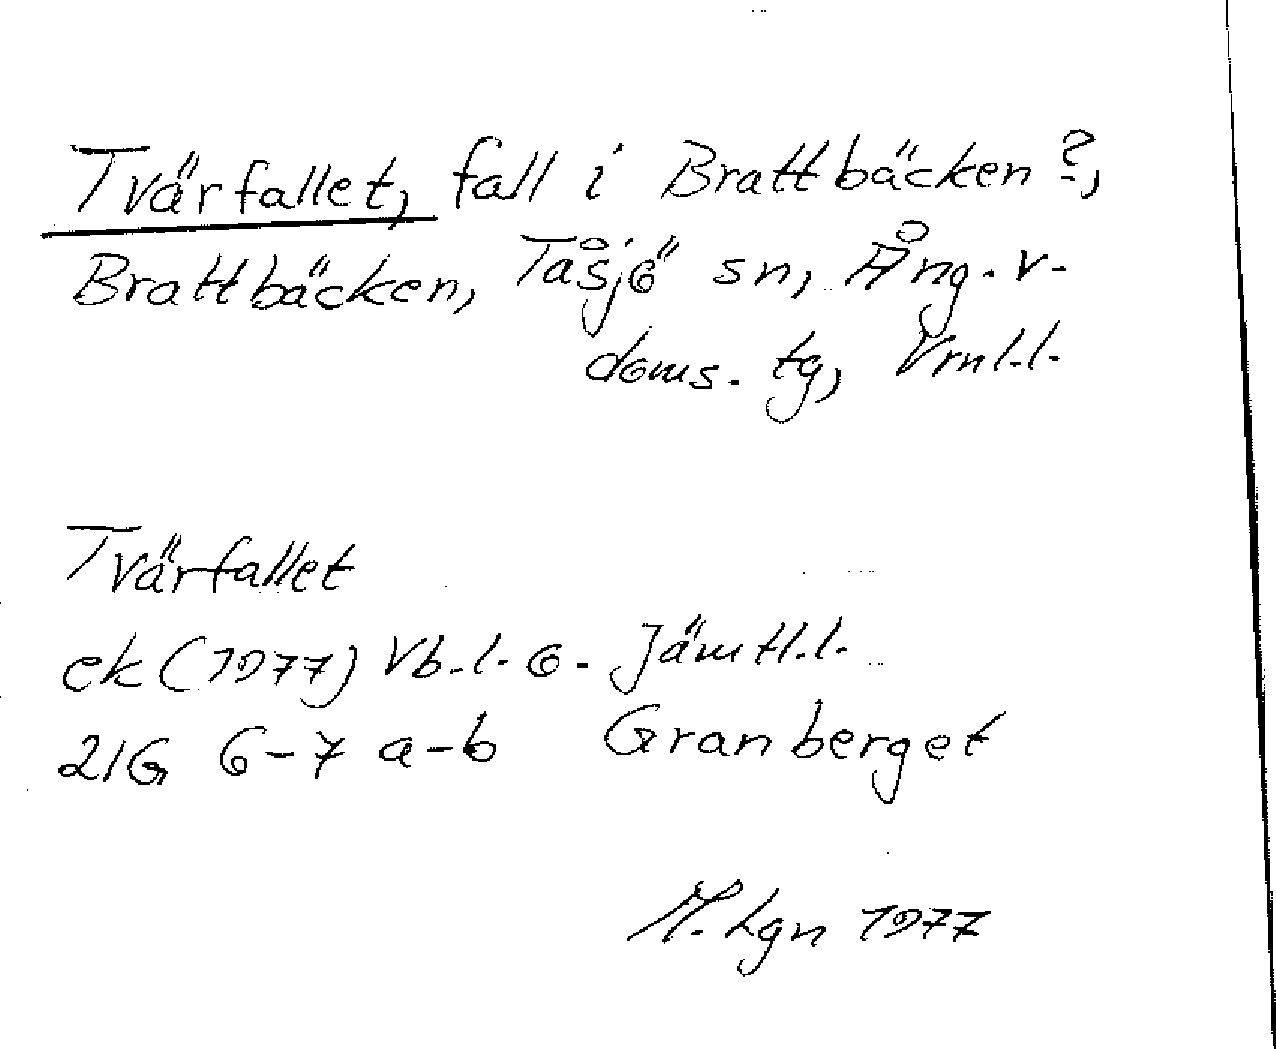 Tvärfallet, fall i Brattbäcken?,
Brattbäcken, Tåsjö sn, Ång. v.
doms. tg, Vrnl.l.
Tvärfallet
ek (1977) Vb.l. o. Jämtl.l.
21G 6-7 a-b Granberget
Lgn 1977